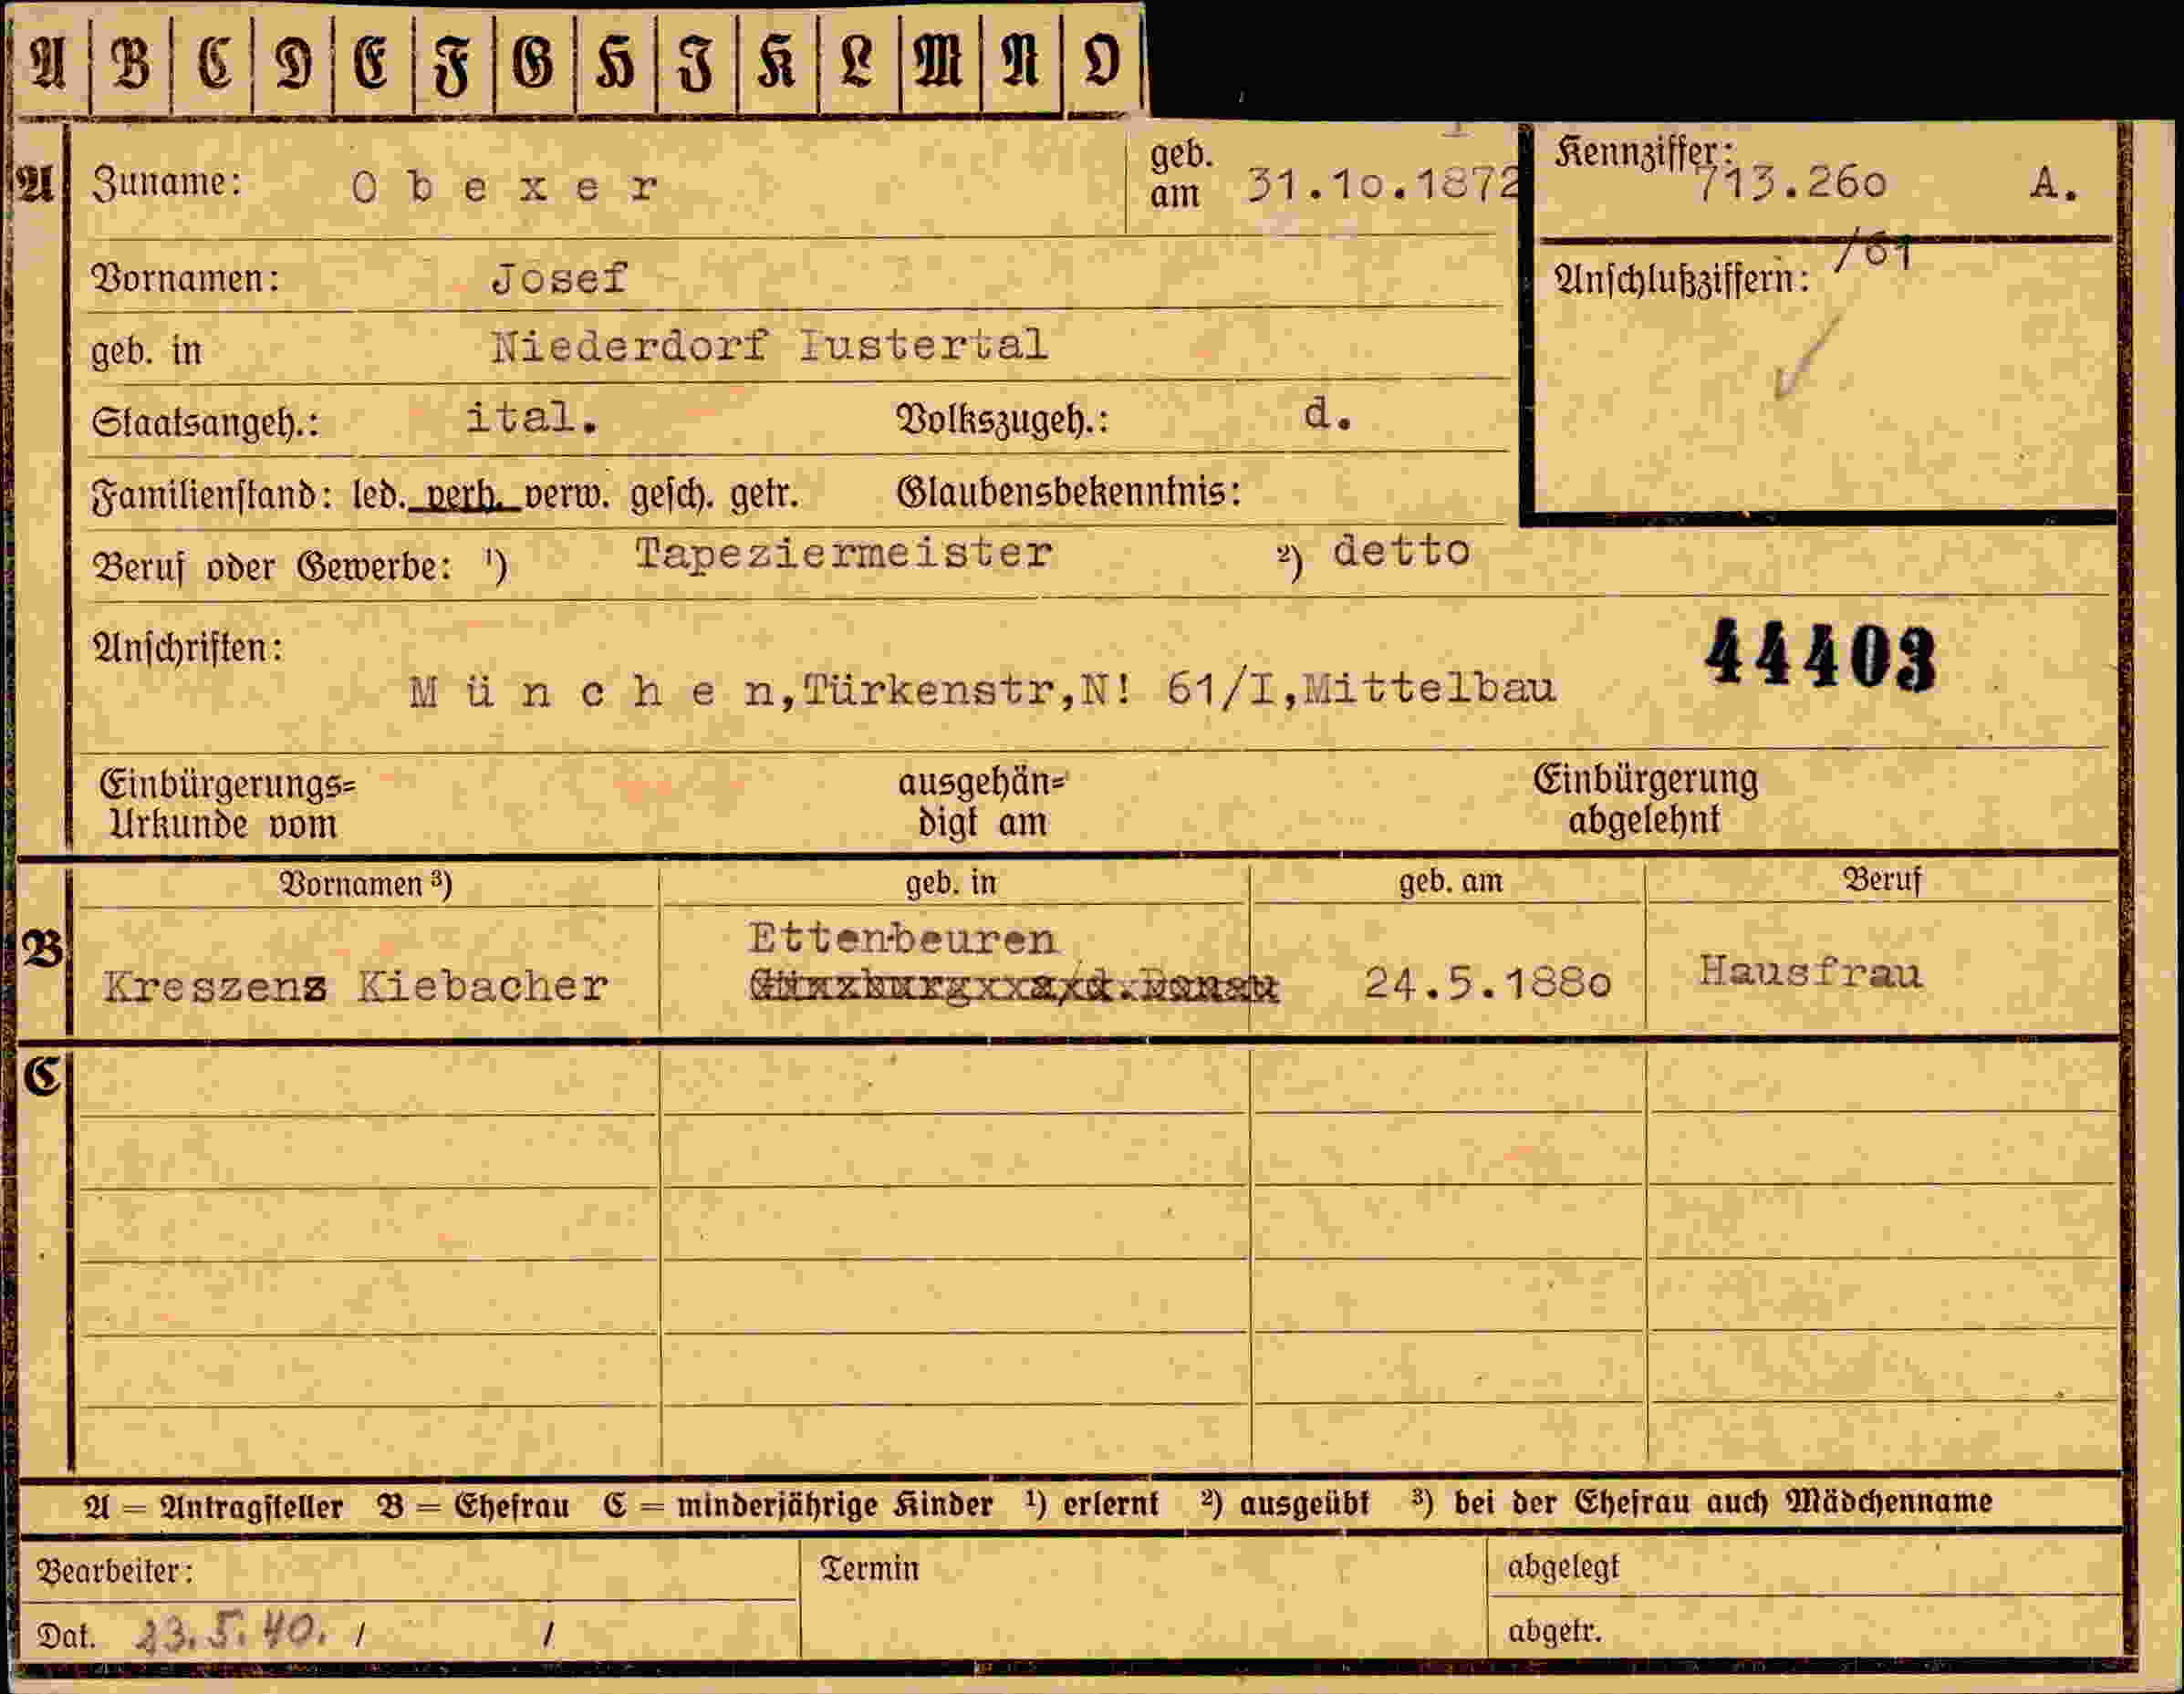 A B C D E F G H I K L M N O
A Zuname: O b e x e r geb. am 31.10.1872 Kennziffer: 713.260 A.
/61
Vornamen: Josef Anschlußziffern:
geb. in Niederdorf Pustertal
Staatsangeh.: ital. Volkszugeh.: d.
Familienstand: led. verh. verw. gesch. getr. Glaubensbekenntnis:
Beruf oder Gewerbe: ¹) Tapeziermeister ²) detto
Anschriften: 44403
M ü n c h e n,Türkenstr,N! 61/I,Mittelbau
Einbürgerungs= ausgehän= Einbürgerung
Urkunde vom digt am abgelehnt
Vornamen ³) geb. in geb. am Beruf
Ettenbeuren
B Kreszenz Kiebacher 24.5.1880 Hausfrau
C
A = Antragsteller B = Ehefrau C = minderjährige Kinder ¹) erlernt ²) ausgeübt ³) bei der Ehefrau auch Mädchenname
Bearbeiter: Termin abgelegt
Dat. 23.5.40. / / abgetr.